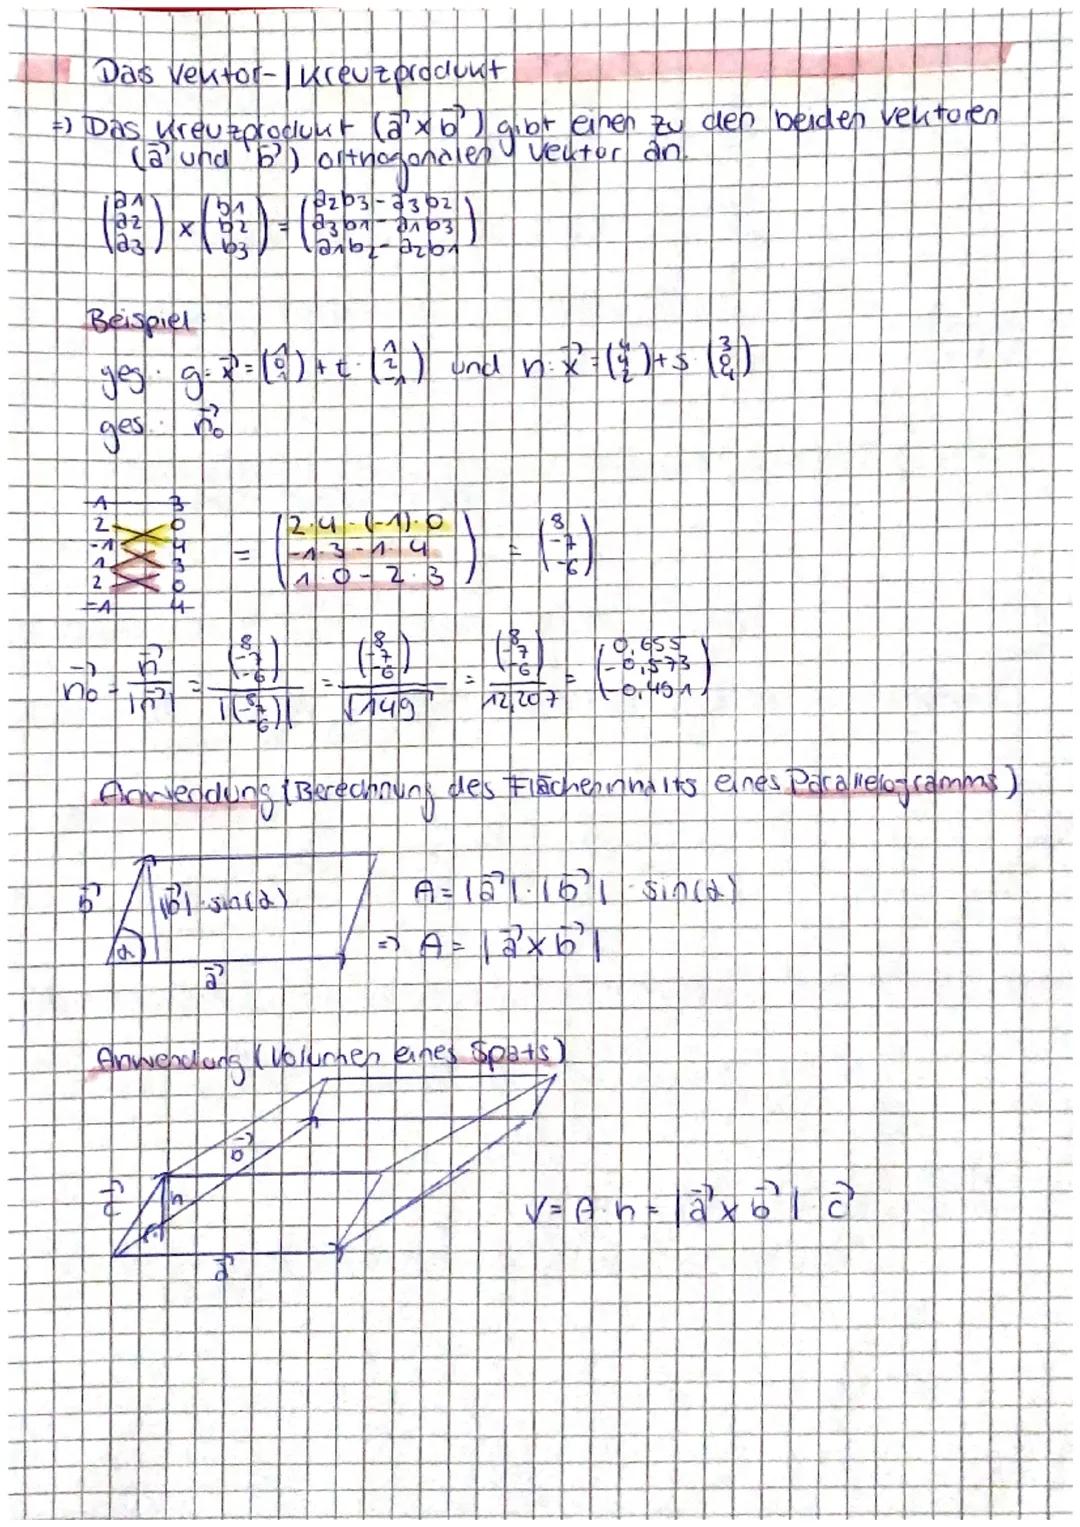 Das Vektor-/Kreuzprodukt
=> Das Kreuzprodukt (a⃗ x b⃗) gibt einen zu den beiden Vektoren
(a⃗ und b⃗) orthogonalen Vektor an.
(a1 a2 a3) x (b1 b2 b3) = (a2b3-a3b2 a3b1-a1b3 a1b2-a2b1)
Beispiel:
geg.: g: x⃗ = (1 0 1) + t · (1 2 -1) und h: x⃗ = (4 4 2) + s · (3 0 4)
ges.: n⃗0
1 3
2 0
-1 4
1 3
2 0
-1 4
= (2·4-(-1)·0 -1·3-1·4 1·0-2·3) = (8 -7 -6)
n⃗0 = n⃗/|n⃗| = (8 -7 -6)/|(8 -7 -6)| = (8 -7 -6)/√149 = (8 -7 -6)/12,207 = (0,655 -0,573 -0,491)
Anwendung (Berechnung des Flächeninhalts eines Parallelogramms)
b⃗ |b⃗|·sin(α) A = |a⃗|·|b⃗| · sin(α)
α => A = |a⃗ x b⃗|
a⃗
Anwendung (Volumen eines Spats)
b⃗
c⃗ h V = A·h = |a⃗ x b⃗| · c⃗
a⃗